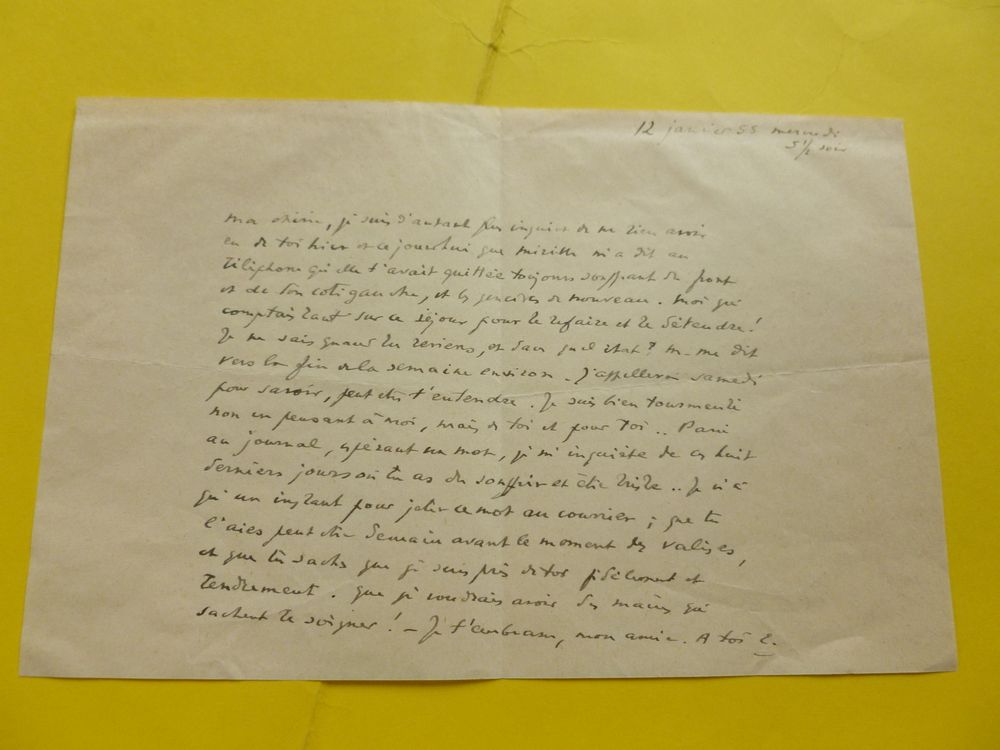 12 janvier 55 mercredi
5 1/2 soir
ma chérie, je suis d'autant plus inquiet de ne rien avoir
eu de toi hier et ce jourd'hui que mireille m'a dit au
téléphone qu'elle t'avait quittée toujours souffrant du front
et de ton côté gauche, et les gencives de nouveau. Moi qui
comptais tant sur ce séjour pour te refaire et te détendre!
Je ne sais quand tu reviens, et dans quel état? m-me dit
vers la fin de la semaine environ. J'appellerai samedi
pour savoir, peut être t'entendre. Je suis bien tourmenté
non en pensant à moi, mais de toi et pour toi..
au journal, espérant un mot, je m'inquiète de ces huit
derniers jours où tu as du souffrir et être triste.. Je n'ai
qu'un instant pour jeter ce mot au courrier; que tu
l'aies peut être demain avant le moment des valises,
et que tu saches que je suis près de toi fidèlement et
tendrement. que je voudrais avoir des mains qui
sachent te soigner! - Je t'embrasse, mon amie. A toi